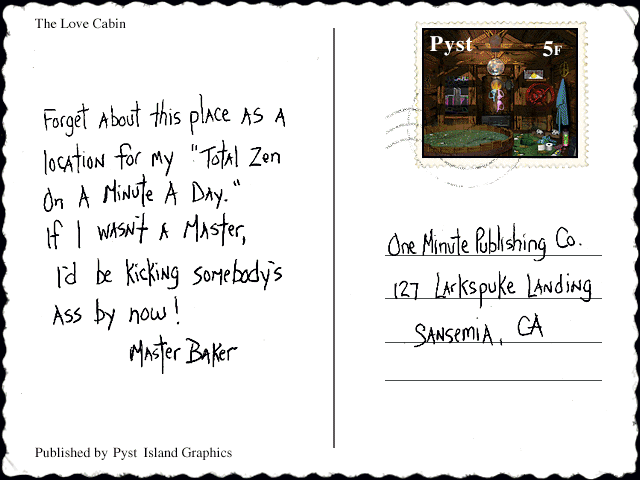 The Love Cabin
Forget About this place as a
location for my "Total Zen
On A Minute A Day."
If I wasn't a Master,
I'd be kicking somebody's
Ass by now!
Master Baker
Published by Pyst Island Graphics
Pyst 5F
One Minute Publishing Co.
127 Larkspuke Landing
Sansemia, CA